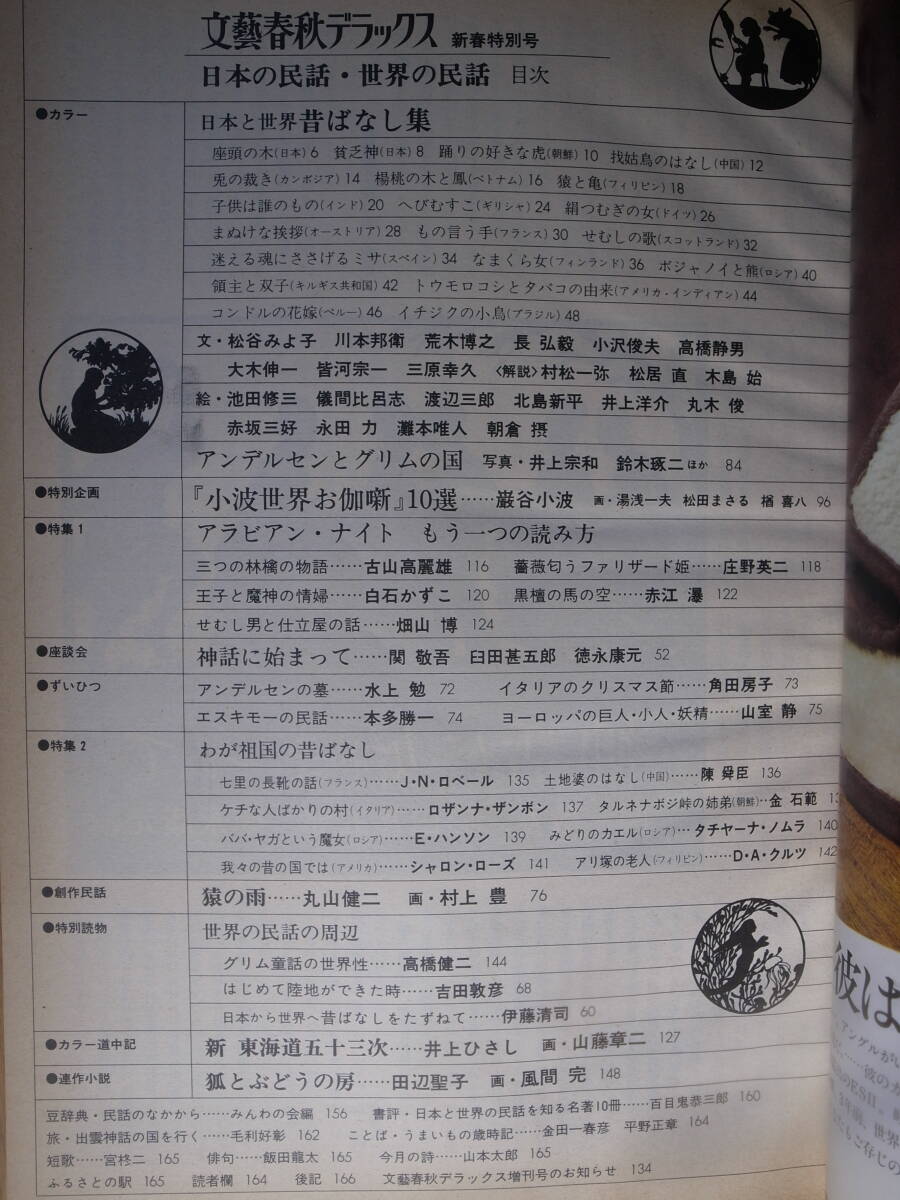 文藝春秋デラックス 新春特別号
日本の民話・世界の民話 目次
●カラー
日本と世界昔ばなし集
座頭の木(日本)6 貧乏神(日本)8 踊りの好きな虎(朝鮮)10 找姑鳥のはなし(中国)12
兎の裁き(カンボジア)14 楊桃の木と鳳(ベトナム)16 猿と亀(フィリピン)18
子供は誰のもの(インド)20 へびむすこ(ギリシャ)24 絹つむぎの女(ドイツ)26
まぬけな挨拶(オーストリア)28 もの言う手(フランス)30 せむしの歌(スコットランド)32
迷える魂にささげるミサ(スペイン)34 なまくら女(フィンランド)36 ボジャノイと熊(ロシア)40
領主と双子(キルギス共和国)42 トウモロコシとタバコの由来(アメリカ・インディアン)44
コンドルの花嫁(ペルー)46 イチジクの小鳥(ブラジル)48
文・松谷みよ子 川本邦衛 荒木博之 長 弘毅 小沢俊夫 高橋静男
大木伸一 皆河宗一 三原幸久 〈解説〉村松一弥 松居 直 木島 始
絵・池田修三 儀間比呂志 渡辺三郎 北島新平 井上洋介 丸木 俊
赤坂三好 永田 力 灘本唯人 朝倉 摂
アンデルセンとグリムの国 写真・井上宗和 鈴木琢二ほか 84
●特別企画
『小波世界お伽噺』10選……巌谷小波 画・湯浅一夫 松田まさる 楢 喜八 96
●特集1
アラビアン・ナイト もう一つの読み方
三つの林檎の物語……古山高麗雄 116 薔薇匂うファリザード姫……庄野英二 118
王子と魔神の情婦……白石かずこ 120 黒檀の馬の空……赤江 瀑 122
せむし男と仕立屋の話……畑山 博 124
●座談会
神話に始まって……関 敬吾 臼田甚五郎 徳永康元 52
●ずいひつ
アンデルセンの墓……水上 勉 72 イタリアのクリスマス節……角田房子 73
エスキモーの民話……本多勝一 74 ヨーロッパの巨人・小人・妖精……山室 静 75
●特集2
わが祖国の昔ばなし
七里の長靴の話(フランス)……J・N・ロベール 135 土地婆のはなし(中国)……陳 舜臣 136
ケチな人ばかりの村(イタリア)……ロザンナ・ザンボン 137 タルネナボジ峠の姉弟(朝鮮)‥金 石範 13
ババ・ヤガという魔女(ロシア)……E・ハンソン 139 みどりのカエル(ロシア)…タチヤーナ・ノムラ 140
我々の昔の国では(アメリカ)……シャロン・ローズ 141 アリ塚の老人(フィリピン)……D・A・クルツ 142
●創作民話
猿の雨……丸山健二 画・村上 豊 76
●特別読物
世界の民話の周辺
グリム童話の世界性……高橋健二 144
はじめて陸地ができた時……吉田敦彦 68
日本から世界へ昔ばなしをたずねて……伊藤清司 60
●カラー道中記
新 東海道五十三次……井上ひさし 画・山藤章二 127
●連作小説
狐とぶどうの房……田辺聖子 画・風間 完 148
豆辞典・民話のなかから……みんわの会編 156 書評・日本と世界の民話を知る名著10冊……百目鬼恭三郎 160
旅・出雲神話の国を行く……毛利好彰 162 ことば・うまいもの歳時記……金田一春彦 平野正章 164
短歌……宮柊二 165 俳句……飯田龍太 165 今月の詩……山本太郎 165
ふるさとの駅 165 読者欄 164 後記 166 文藝春秋デラックス増刊号のお知らせ 134
彼は